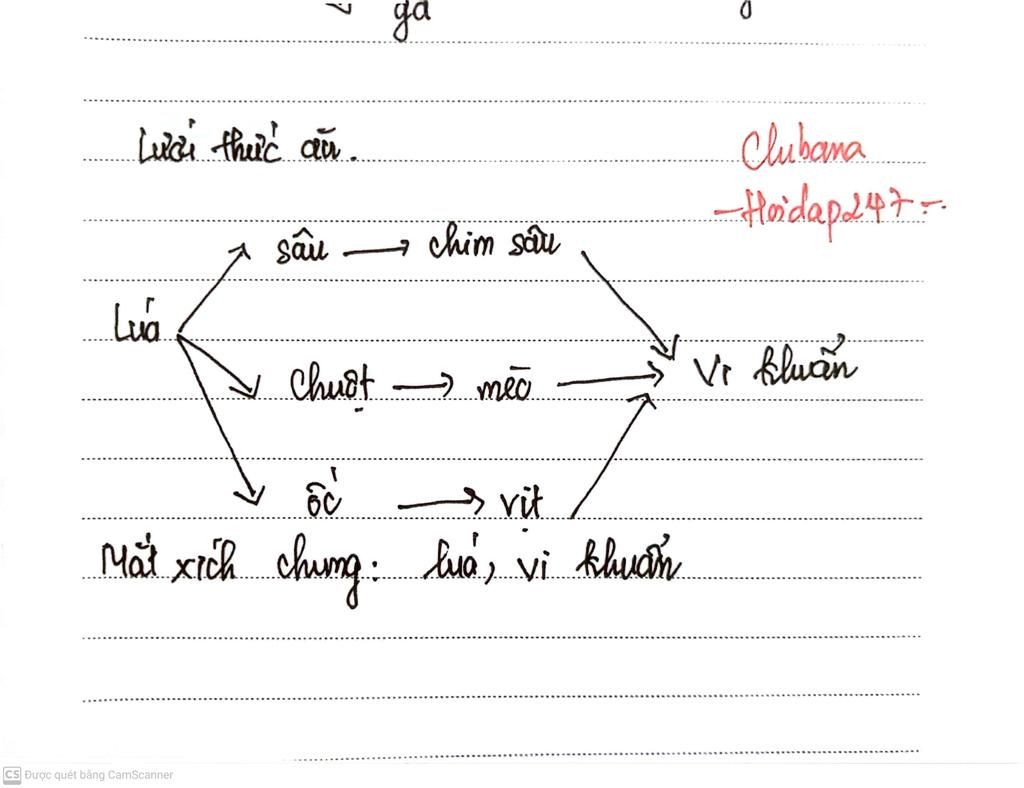 gà
Lưới thức ăn.
Clubana
-Hoidap247-
sâu → chim sâu
Lúa
Chuột → mèo → Vi khuẩn
ốc → vịt
Mắt xích chung: lúa, vi khuẩn
CS Được quét bằng CamScanner